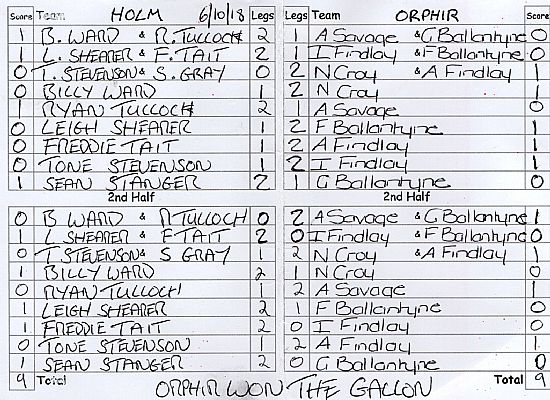 Score Team HOLM 6/10/18 Legs Legs Team ORPHIR Score
1 B. WARD & R. TULLOCH 2 1 A Savage & G Ballantyne 0
1 L. SHEARER & F. TAIT 2 1 I Findlay & F Ballantyne 0
0 T. STEVENSON & S. GRAY 0 2 N Croy & A Findlay 1
0 BILLY WARD 1 2 N Croy 1
1 RYAN TULLOCH 2 1 A Savage 0
0 LEIGH SHEARER 1 2 F Ballantyne 1
0 FREDDIE TAIT 1 2 A Findlay 1
0 TONE STEVENSON 1 2 I Findlay 1
1 SEAN STANGER 2 1 G Ballantyne 0
2nd Half 2nd Half
0 B WARD & R TULLOCH 0 2 A Savage & G Ballantyne 1
1 L SHEARER & F TAIT 2 0 I Findlay & F Ballantyne 0
0 T. STEVENSON & S GRAY 1 2 N Croy & A Findlay 1
1 BILLY WARD 2 1 N Croy 0
0 RYAN TULLOCH 1 2 A Savage 1
1 LEIGH SHEARER 2 1 F Ballantyne 0
1 FREDDIE TAIT 2 0 I Findlay 0
0 TONE STEVENSON 1 2 A Findlay 1
1 SEAN STANGER 2 0 G Ballantyne 0
9 Total Total 9
ORPHIR WON THE GALLON